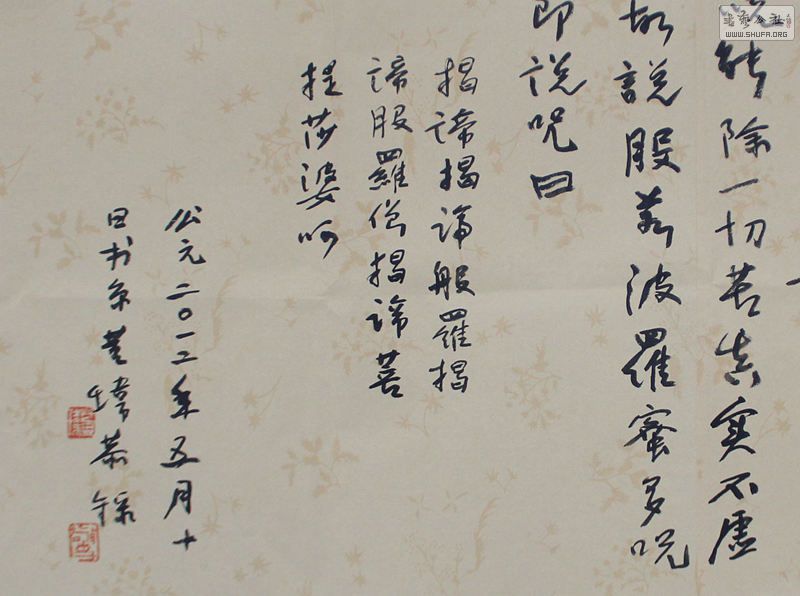 書藝公社
WWW.SHUFA.ORG
能除一切苦真实不虚
故説般若波羅蜜多呪
即说呪曰
揭諦揭諦般羅揭
諦般羅僧揭諦菩
提莎婆呵
公元二〇一二年五月十
日书京瑋恭録